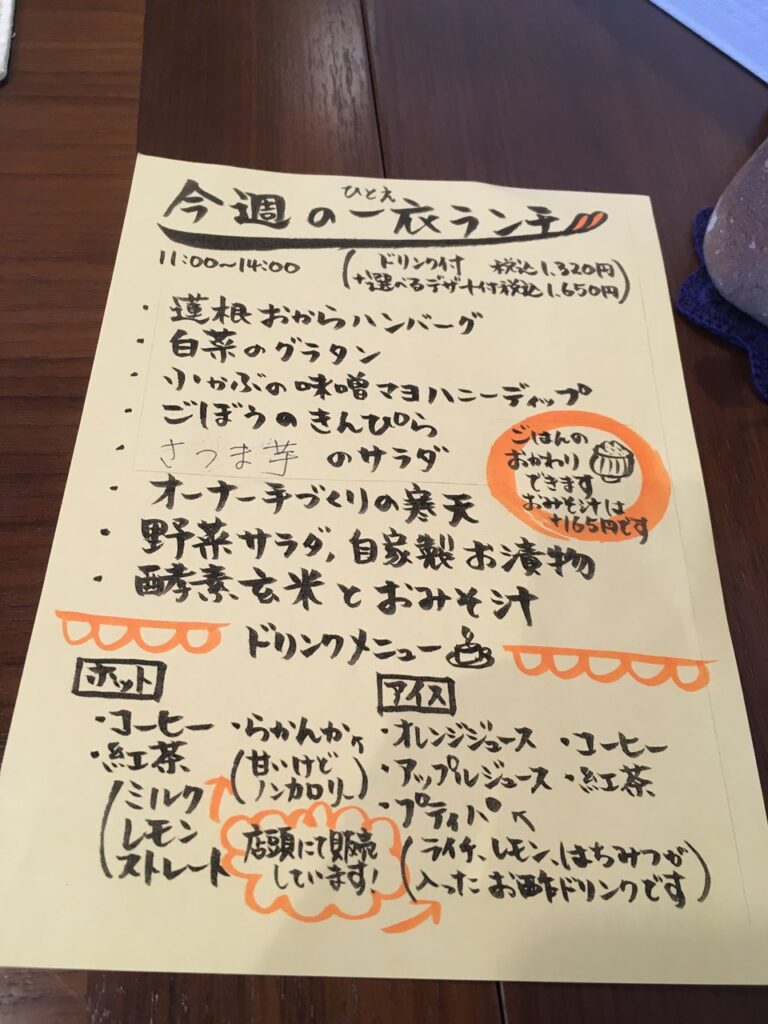 ひとえ
今週の一衣ランチ
11:00~14:00
(ドリンク付 税込1,320円
+選べるデザート付税込1,650円)
・蓮根おからハンバーグ
・白菜のグラタン
・小かぶの味噌マヨハニーディップ
・ごぼうのきんぴら
・さつま芋のサラダ
・オーナー手づくりの寒天
・野菜サラダ,自家製お漬物
・酵素玄米とおみそ汁
ごはんの
おかわり
できます
おみそ汁は
+165円です
ドリンクメニュー
ホット
・コーヒー
・紅茶
(ミルク
レモン
ストレート
・らかんか
(甘いけど
ノンカロリー)
アイス
・オレンジジュース
・アップルジュース
・プティパ
(ライチ、レモン、はちみつが
入ったお酢ドリンクです)
・コーヒー
・紅茶
店頭にて販売
しています!